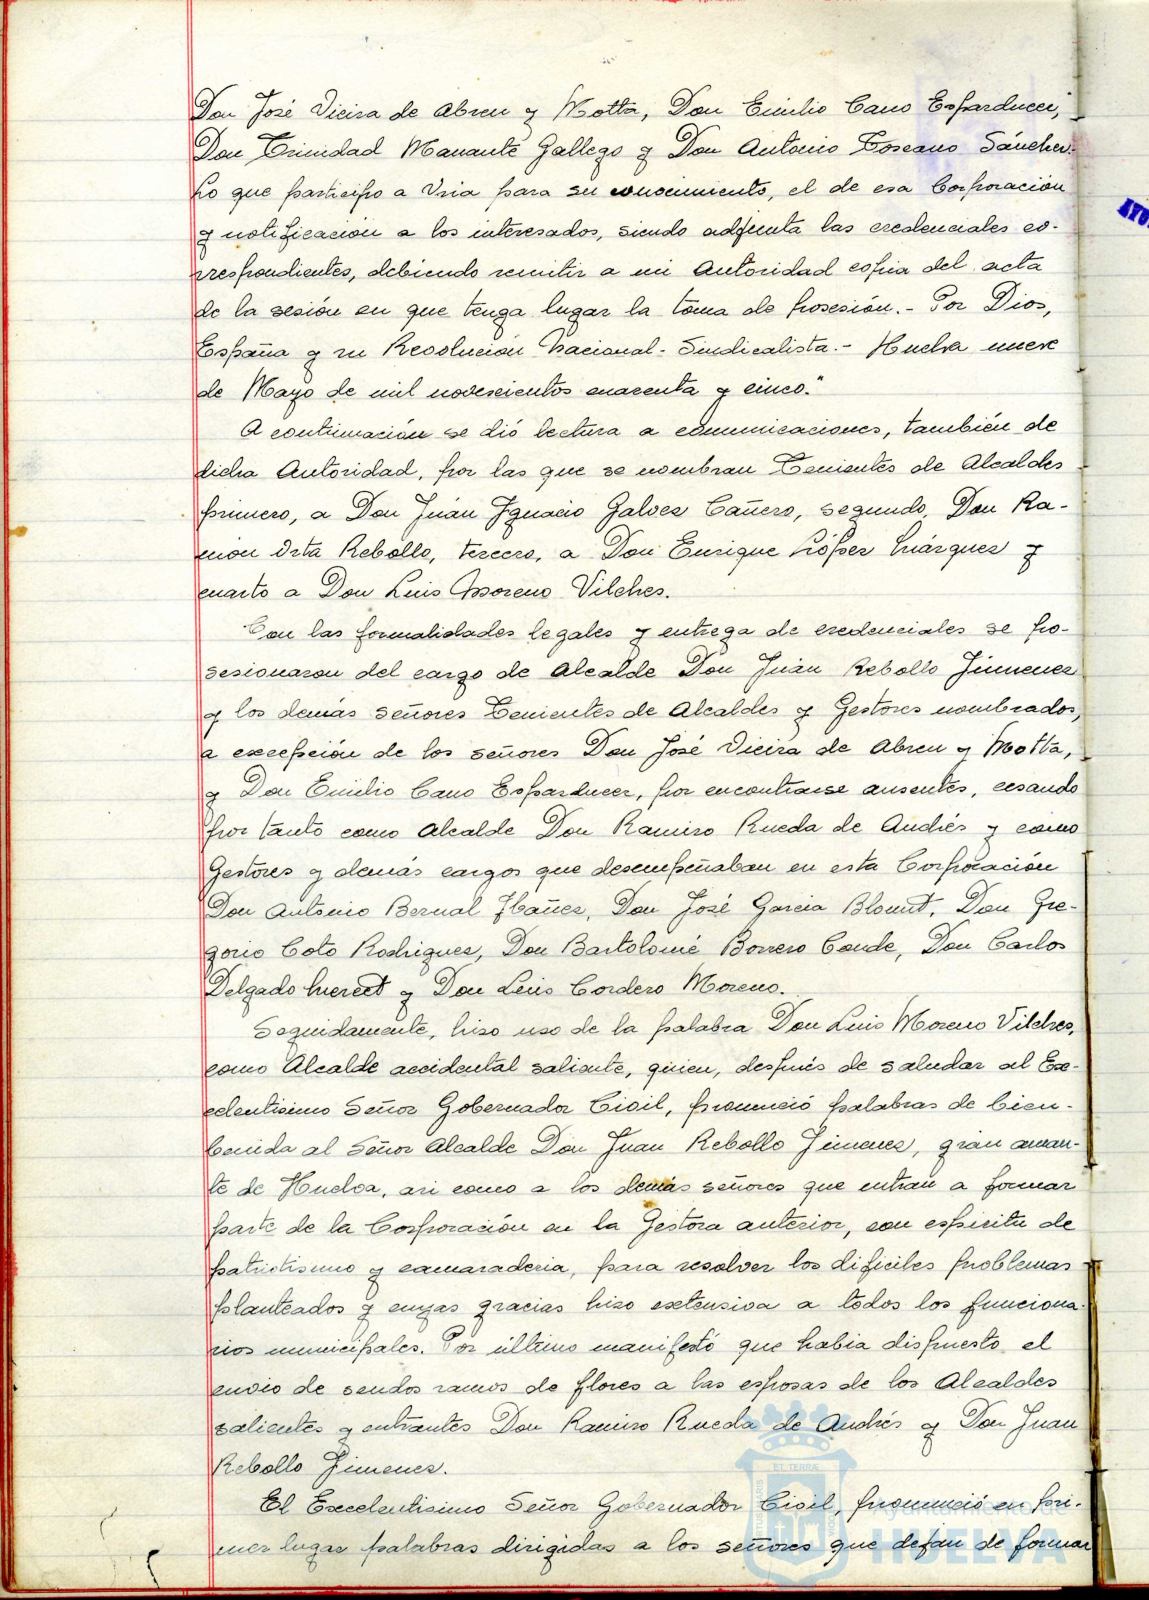 Don José Vieira de Abreu y Motta, Don Emilio Cano Esparducer,
Don Trinidad Manante Gallego y Don Antonio Toscano Sánchez.
Lo que participo a Vsia para su conocimiento, el de esa Corporación
y notificación a los interesados, siendo adjunta las credenciales co-
rrespondientes, debiendo remitir a mi Autoridad copia del acta
de la sesión en que tenga lugar la toma de posesión.- Por Dios,
España y su Revolución Nacional-Sindicalista.- Huelva nueve
de Mayo de mil novescientos cuarenta y cinco."
A continuación se dió lectura a comunicaciones, también de
dicha Autoridad, por las que se nombran Tenientes de Alcaldes
primero, a Don Juan Ignacio Galvez Cañero, segundo, Don Ra-
món Orta Rebollo, tercero, a Don Enrique López Márquez y
cuarto a Don Luis Moreno Vilches.
Con las formalidades legales y entrega de credenciales se po-
sesionaron del cargo de Alcalde Don Juan Rebollo Jimenez
y los demás señores Tenientes de Alcaldes y Gestores nombrados,
a excepción de los señores Don José Vieira de Abreu y Motta,
y Don Emilio Cano Esparducer, por encontrarse ausentes, cesando
por tanto como Alcalde Don Ramiro Rueda de Andrés y como
Gestores y demás cargos que desempeñaban en esta Corporación
Don Antonio Bernal Ibañez, Don José Garcia Blount, Don Gre-
gorio Coto Rodriguez, Don Bartolomé Borrero Conde, Don Carlos
Delgado y Don Luis Cordero Moreno.
Seguidamente, hizo uso de la palabra Don Luis Moreno Vilches,
como Alcalde accidental saliente, quien, después de saludar al Ex-
celentisimo Señor Gobernador Civil, pronunció palabras de bien-
venida al Señor Alcalde Don Juan Rebollo Jimenez, gran aman-
te de Huelva, asi como a los demás señores que entran a formar
parte de la Corporación en la Gestora anterior, con espiritu de
patriotismo y camaraderia, para resolver los dificiles problemas
planteados y cuyas gracias hizo extensiva a todos los funciona-
rios municipales. Por último manifestó que habia dispuesto el
envio de sendos ramos de flores a las esposas de los Alcaldes
salientes y entrantes Don Ramiro Rueda de Andrés y Don Juan
Rebollo Jimenez.
El Excelentisimo Señor Gobernador Civil, pronunció en pri-
mer lugar palabras dirigidas a los señores que dejan de formar
Ayuntamiento de
HUELVA